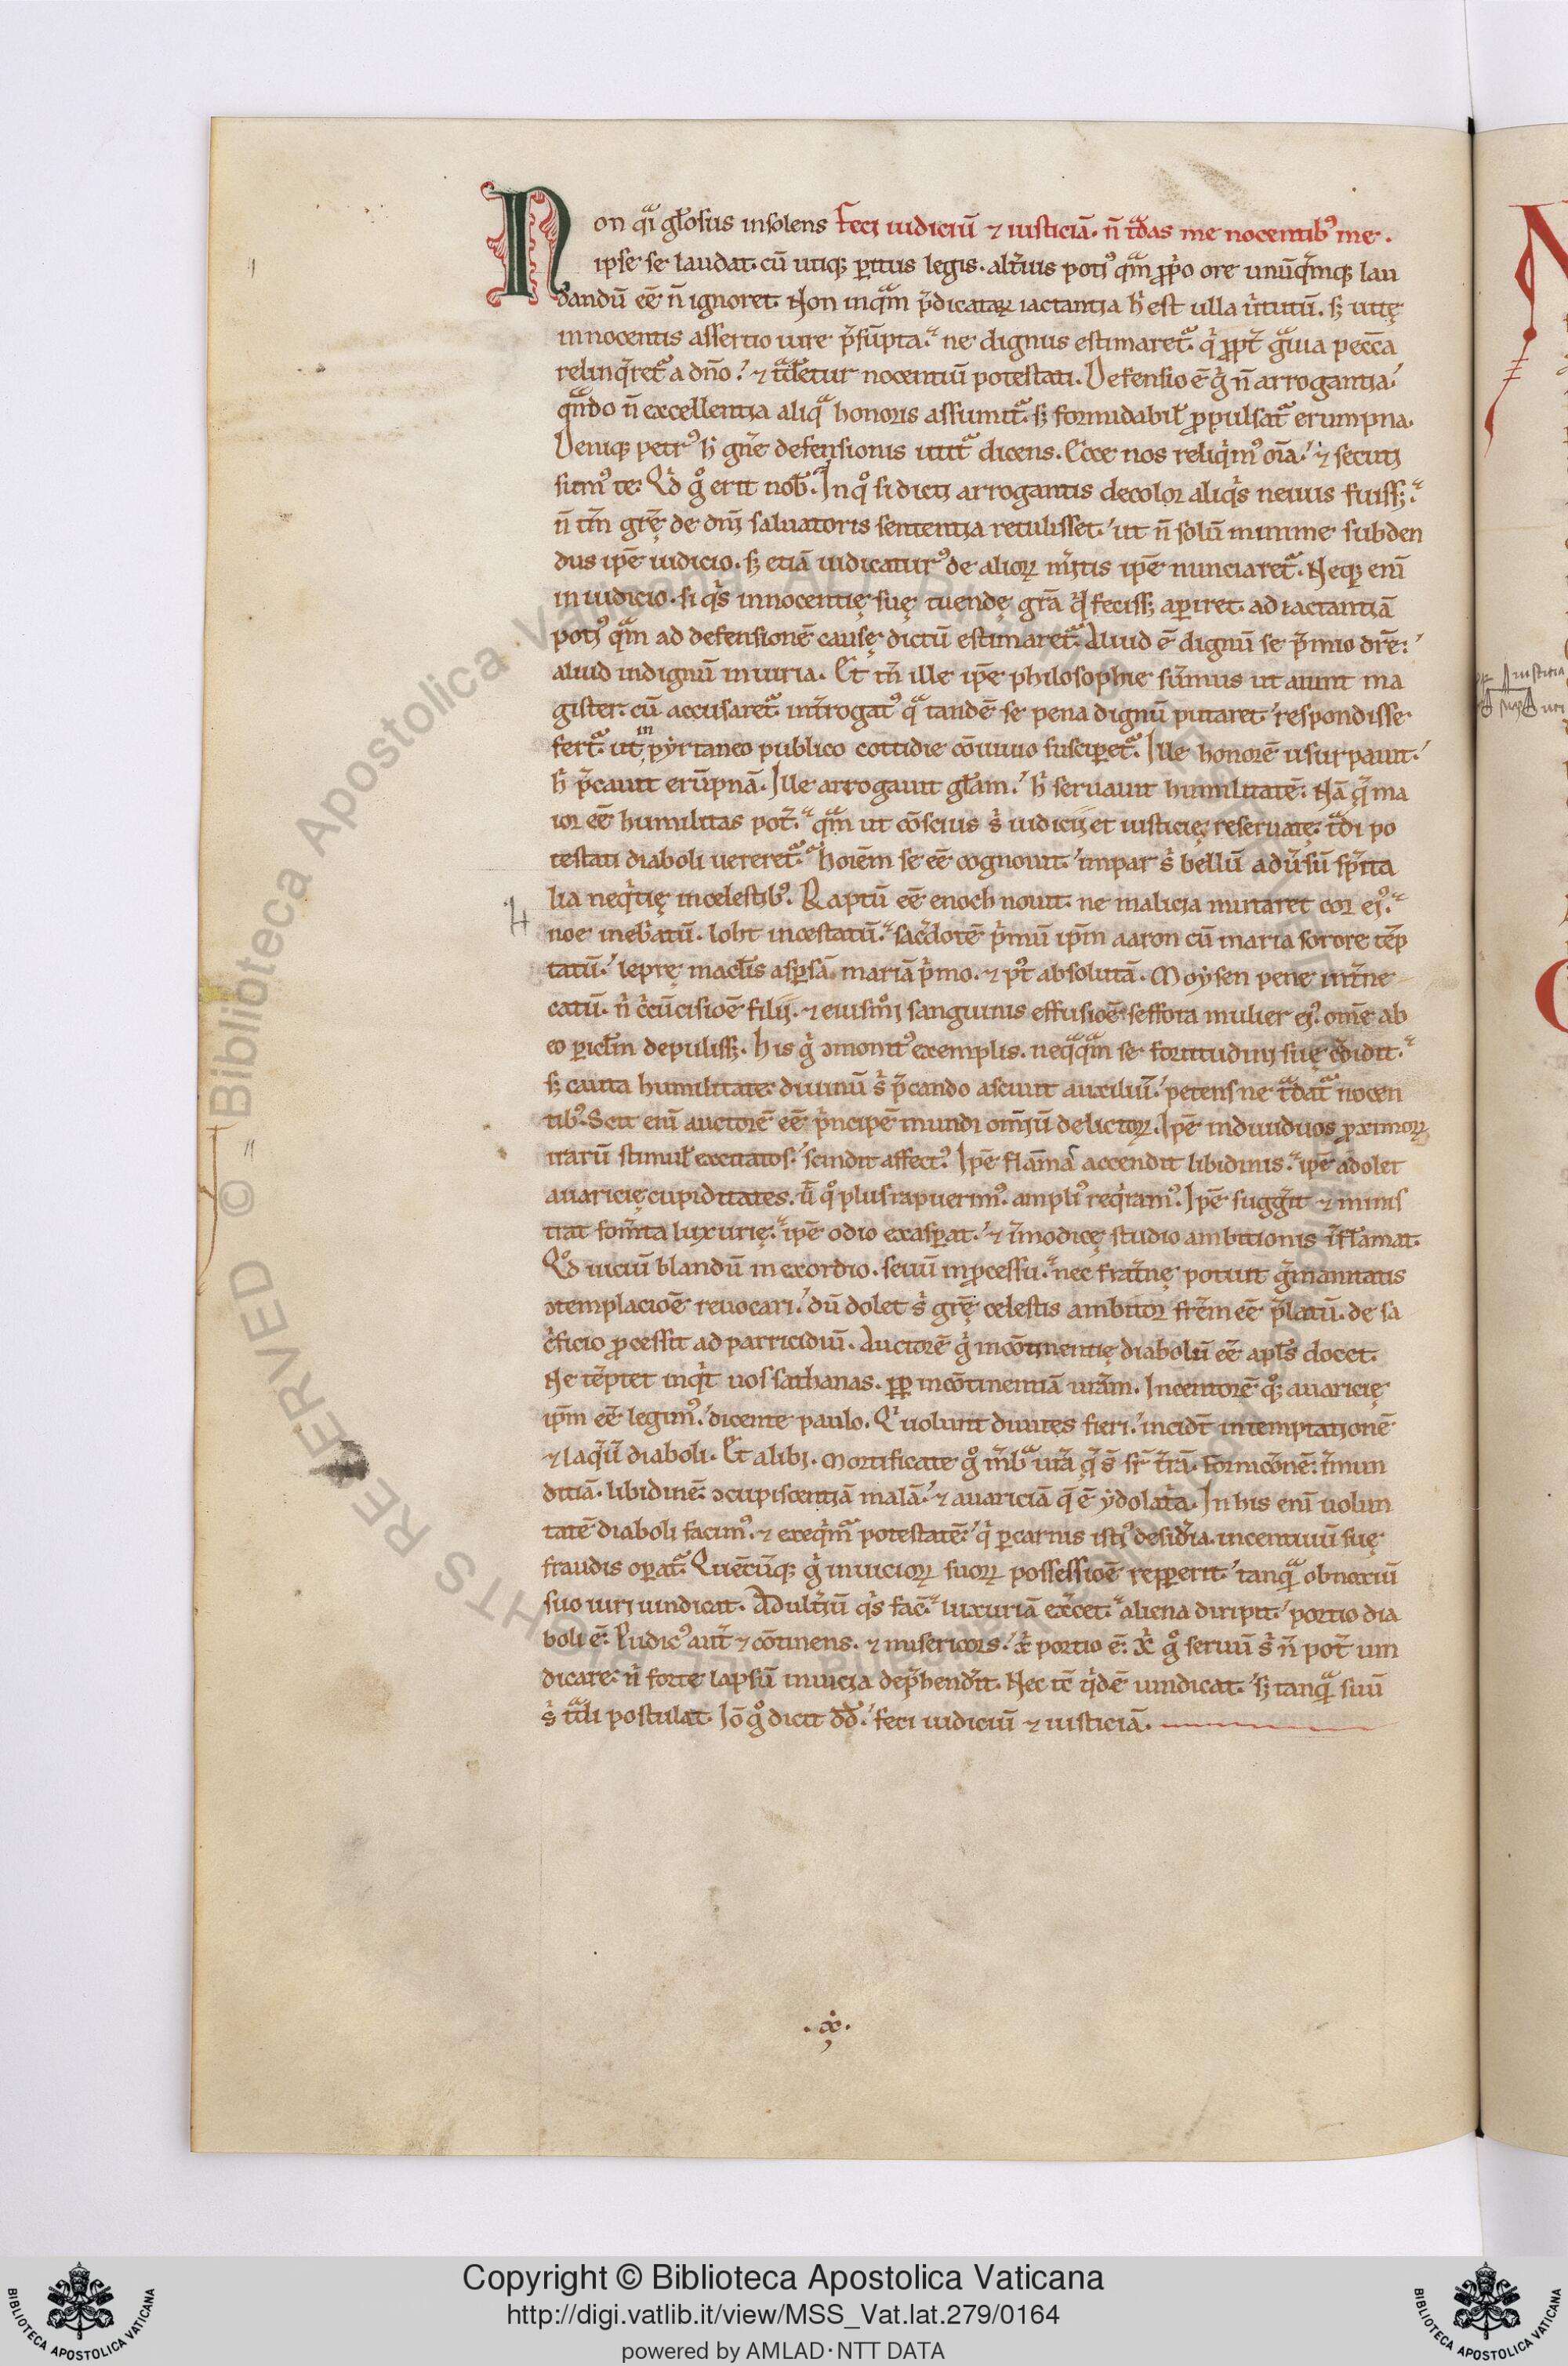 Non qͣi gl̄osus insolens Feci iudiciū ⁊ iusticiā. n̄ tͣdas me nocentib᷒ me.
ipse se laudat. cū utiq; ꝑitus legis. alt̄ius poti᷒ qͣm ꝓp̄o ore unūq̄mq; lau
dandū eē n̄ ignoret. Non inqͣm p̄dicatꝝ iactantia h̄ est ulla ū̄tutū. s; uitę
innocentis assertio iure p̄sūpta. ne dignus estimaretͬ. qͥ ꝓpt̄ gͣuia pecc̄a
relinq̄retͬ a dn̄o. ⁊ tͣdetur nocentiū potestati. Defensio ē gͥ n̄ arrogantia
qͣndo n̄ excellentia aliqͣ honoris assumitͬ. s; formidabil̄ ꝓpulsatͬ erumpna.
Deniq; petr᷒ h̄ gn̄e defensionis utitͬ dicens. Ecce nos reliqͥm᷒ om̄ia. ⁊ secuti
sum᷒ te. Qͥd gͦ erit nob̄. In qͦ si dicti arrogantis decolor aliqͥs neuus fuiss;.
n̄ tm̄ gr̄ę de dn̄i saluatoris sententia retulisset. ut n̄ solū minime subden
dus ip̄e iudicio. s; etiā iudicatur᷒ de alioꝝ m̄itis ip̄e nunciaretͬ. Neq; eni̅
in iudicio. si qͥs innocentię suę tuendę gr̄a qͥd feciss; aperiret. ad iactantiā
poti᷒ qͣm ad defensionē causę dictū estimaretͬ. Aliud ē dignū se p̄mio dr̄e.
aliud indignū iniuria. Et tn̄ ille ip̄e philosophie sūmus ut aiunt ma
gister. cū accusaretͬ. int̄rogat᷒ qͣ tandē se pena dignū putaret. respondisse
fertͬ. ut in pẏrtaneo publico cottidie cōuiuio susciꝑetͬ. Ille honorē usurpauit.
h̄ p̄cauit erūpnā. Ille arrogauit gl̄am. h̄ seruauit humilitatē. Nā q̄ ma
ior eē humilitas pot̄. qͣm ut cōscius sͥ iudicii et iusticię reseruatę. tͣdi po
testati diaboli uereretͬ. hoiēm se eē cognouit. impar sͥ bellū adūsū sp̄ita
lia neqͥtię in celestib᷒. Raptū eē enoch nouit. ne malicia mutaret cor ei᷒.
noe inebͥatū. loht incestatū. sac̄dotē pͥmū ip̄m aaron cū maria sorore tēp
tatū. leprę macl̄is asꝑsā mariā pͥmo. ⁊ p᷒t absolutā. Moẏsen pene int̄ne
catū. nͥ cͥcūcisioē filii. ⁊ eiusmͦi sanguinis effusioē seffora mulier ei᷒. om̄e ab
eo ꝑicl̄m depuliss;. His gͥ ↄmonit᷒ exemplis. neqͣqͣm se fortitudini suę c̄didit.
s; cauta humilitate diuinū sͥ p̄cando asciuit auxiliū. petens ne tͣdatͬ nocen
tib᷒. Scit eni̅ auctorē eē pͥncipē mundi om̄iū delictoꝝ. Ip̄e indiuiduos ꝓximoꝝ
iraru̅ stimul̄ excitatos. scindit affect᷒. Ip̄e flāma accendit libidinis. ip̄e adolet
auaricię cupiditates. ū̄ qͦ plus rapuerim᷒. ampli᷒ reqͥram᷒. Ip̄e sugḡit ⁊ minis
trat fom̄ta luxurię. ip̄e odio exasꝑat. ⁊ īmodicę studio ambitionis īfl̄amat.
Qͦd uiciū blandū in exordio. seuū in ꝓcessu. nec frat̄nę potuit ḡmanitatis
ↄtemplacioē reuocari. dū dolet sͥ gr̄ę celestis ambitor fr̄em eē p̄latū. de sa
cͥficio ꝓcessit ad parricidiū. Auctorē gͥ incōtinentię diabolū eē apl̄s docet.
Ne tēptet inqͥt uos sathanas. ꝓp incōtinentiā ur̄am. Incentorē qͦ; auaricię
ip̄m eē legim᷒. dicente paulo. Qͥ uolunt diuites fieri. incidt̄ in temptationē
⁊ laq̄ū diaboli. Et alibi. Mortificate gͦ m̄bͣ ur̄a q̄ s̄ sr̄ t̄rā. fornicōnē. īmun
ditiā. libidinē. ↄcupiscentiā malā. ⁊ auariciā q̄ ē ẏdolatͥa. In his eni̅ uolun
tatē diaboli facim᷒. ⁊ exeqͥmͬ potestatē. qͥ ꝑ carnis isti᷒ desid̄ia. incentiuū suę
fraudis oꝑatͬ. Quēcūq; gͥ in uicioꝝ suoꝝ possessioē repꝑerit. tanqͣ obnoxiū
suo iuri uindicat. Adult̄iū qͥs fac̄. luxuriā ex̄cet. aliena diripit. portio dia
boli ē. Pudic᷒ aut̄ ⁊ cōtinens. ⁊ misericors. xͥ portio ē. X̄ gͦ seruū sͥ n̄ pot̄ uin
dicare. nͥ forte lapsū in uicia dep̄hend̄it. Nec tc̄ qͥdē uindicat. s; tanqͣ suū
sͥ tͣdi postulat. Iō gͦ dicit dd̄. feci iudiciū ⁊ iusticiā.
.x᷒.
Copyright © Biblioteca Apostolica Vaticana
http://digi.vatlib.it/view/MSS_Vat.lat.279/0164
powered by AMLAD·NTT DATA